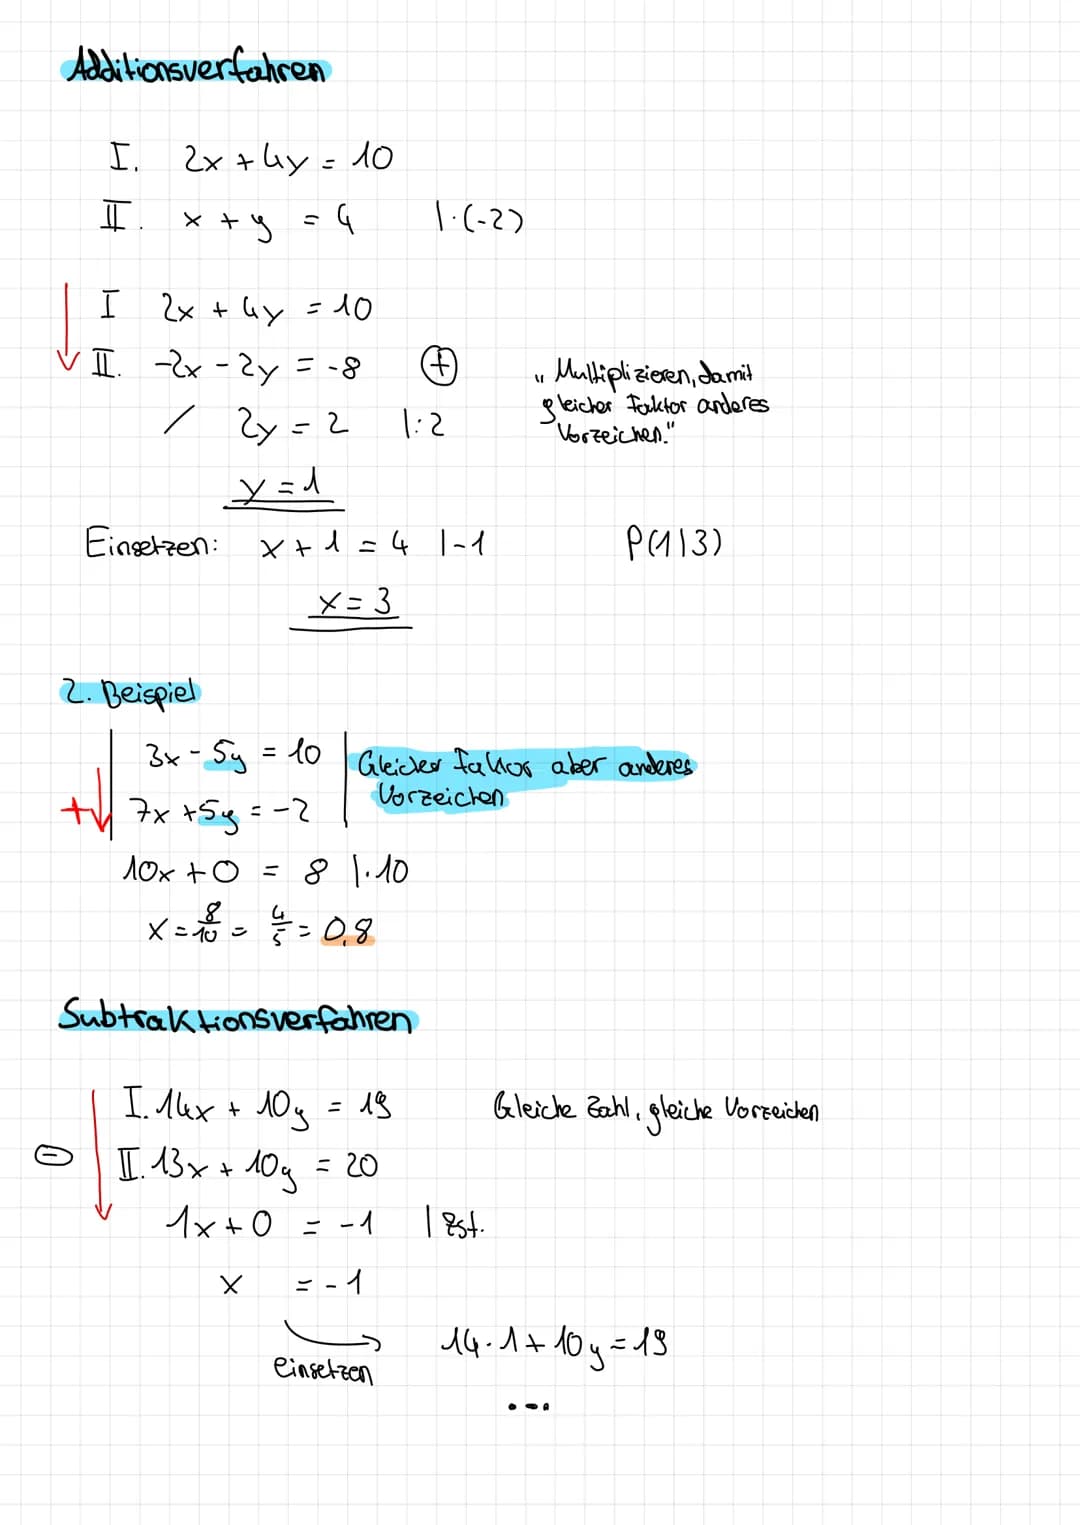 Additionsverfahren
I. 2x + 4y = 10
II. x + y = 4 |·(-2)
I 2x + 4y = 10
II. -2x - 2y = -8 (+)
"Multiplizieren, damit
gleicher Faktor anderes
Vorzeichen."
/ 2y = 2 |:2
y = 1
Einsetzen: x + 1 = 4 |-1 P(1|3)
x = 3
2. Beispiel
3x - 5y = 10 | Gleicher Faktor aber anderes
+ 7x + 5y = -2 | Vorzeichen
10x + 0 = 8 |·10
x = 8/10 = 4/5 = 0,8
Subtraktionsverfahren
I. 14x + 10y = 19 Gleiche Zahl, gleiche Vorzeichen
(-) II. 13x + 10y = 20
1x + 0 = -1 | Zst.
x = -1
einsetzen 14·1 + 10y = 19
...